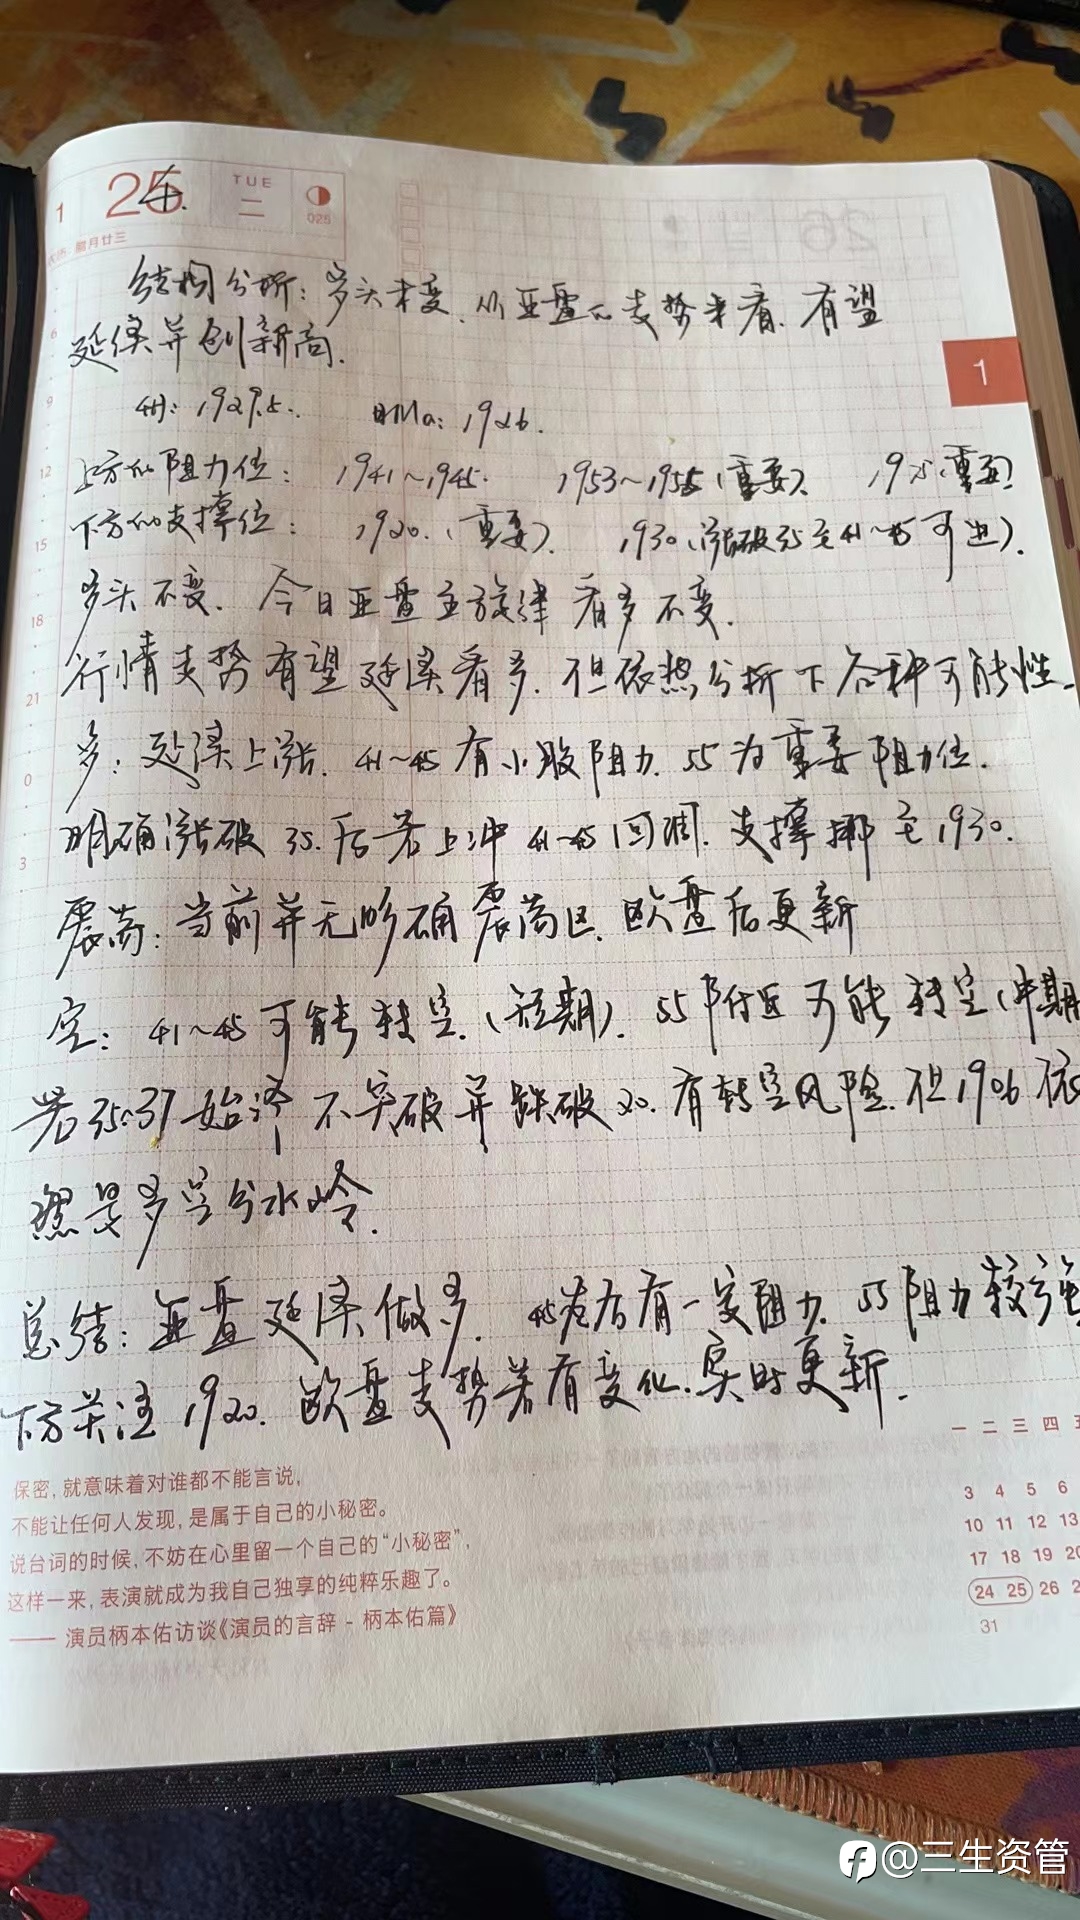 1 25 4. TUE
二 025
腊月廿三
结构分析：多头未变、从亚盘的走势来看、有望
延续并创新高.
4H：1927.5. 日Ma：1926.
上方的阻力位：1941～1945. 1953～1955（重要）、 1975（重要）
下方的支撑位：1920.（重要）. 1930（涨破35至41～45可进）.
多头不变. 今日亚盘主旋律看多不变.
行情走势有望延续看多. 但依然分析下各种可能性.
多：延续上涨. 41～45有小股阻力. 55为重要阻力位.
明确涨破35.后若上冲41～45回调. 支撑挪至1930.
震荡：当前并无明确震荡区、欧盘后更新
空：41～45可能转空.（短期）. 55附近可能转空（中期
若35~37始终不突破并跌破20.有转空风险.但1906依
然是多空分水岭.
总结：亚盘延续做多. 45左右有一定阻力. 55阻力较强
下方关注1920. 欧盘走势若有变化.实时更新.
保密，就意味着对谁都不能言说，
不能让任何人发现，是属于自己的小秘密。
说台词的时候，不妨在心里留一个自己的“小秘密”，
这样一来，表演就成为我自己独享的纯粹乐趣了。
—— 演员柄本佑访谈《演员的言辞 - 柄本佑篇》
1
6
9
12
15
18
21
0
3
一 二 三 四 五
3 4 5 6
10 11 12 13
17 18 19 20
24 25 26
31
@三生资管